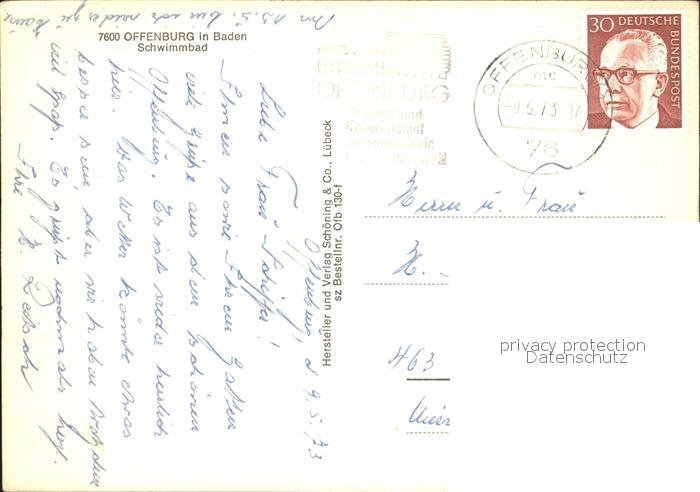 Am 13.5. bin ich wieder zu Hause
7600 OFFENBURG in Baden
Schwimmbad
Offenburg, d. 9.5.73
Liebe Frau
Ihnen sowie Ihrem Gatten
viele Grüße aus dem schönen
Offenburg. Es ist wieder herrlich
hier. Das Wetter könnte etwas
besser sein, aber wir haben trotzdem
viel Spaß. Es grüßt nochmals herzl.
Ihre
Hersteller und Verlag Schöning & Co., Lübeck
sz Bestellnr. Ofb 130-f
OFFENBURG
OFFENBURG
mc
-9.5.73-17
76
30 DEUTSCHE BUNDESPOST
Herrn u. Frau
H.
463
privacy protection
Datenschutz